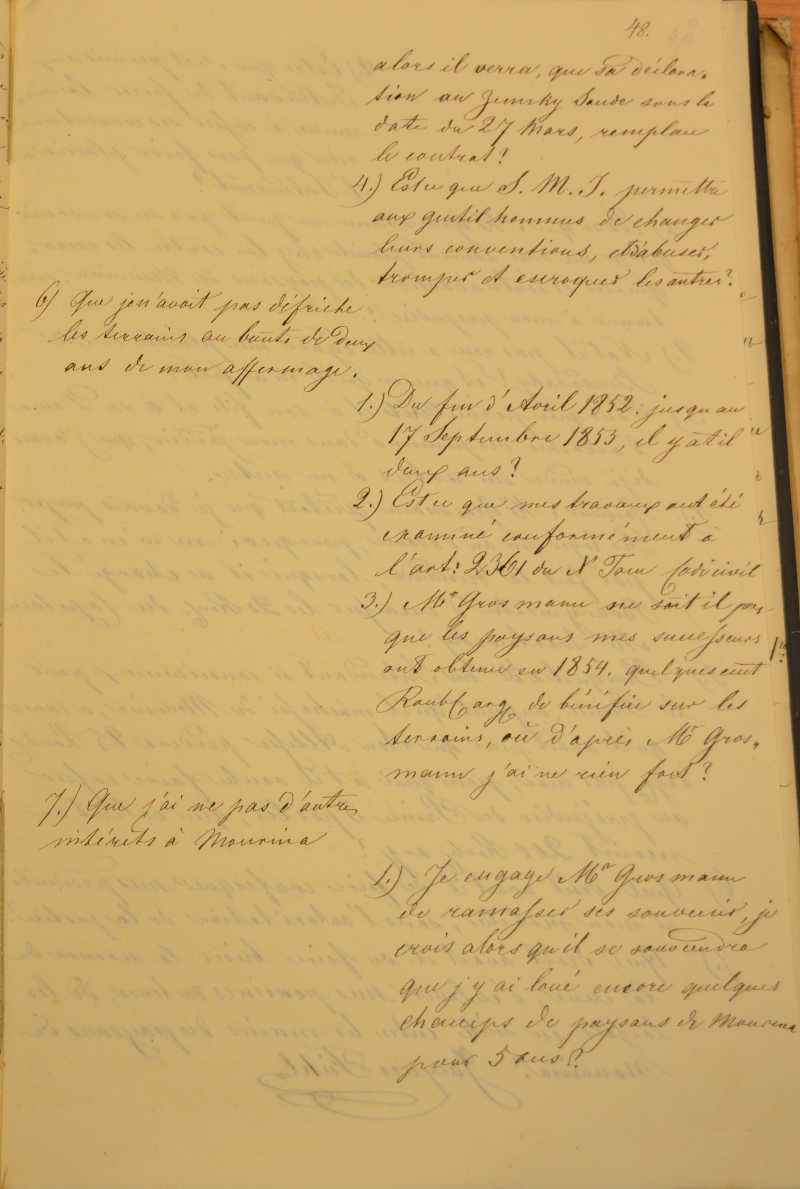 48.
alors il verra, que sa déclara-
tion au Zemsky Soude sous la
date du 27 Mars, remplace
le contrat?
4.) Est ce que S. M. I. permettra
aux gentilhommes de changer
leurs conventions, et d'abuser,
tromper et escroquer les autres?
6) Que je n'avoit pas défriché
les terrains au bouts de deux
ans de mon affermage.
1.) Du fin d'Avril 1852. jusqu'au
17 Septembre 1853, il y a t il
deux ans?
2.) Est ce que mes travaux ont été
examiné conformément à
l'art: 2361 du X Tom Code civil
3.) Mr Grosmann ne sait il pas,
que les paysans mes successeurs
ont obtenu en 1854. quelques cent
Roub arg de bénéfice sur les
terrains, où d'après Mr Gros-
mann j'ai ne rien fait?
7.) Que j'ai ne pas d'autres
intérets à Mourina
1.) Je engage Mr Grosmann
de ramasser ses souvenir, je
crois alors qu'il se souviendra
que j'y ai loué encore quelques
champs de paysans de Mourina
pour 5 ans?